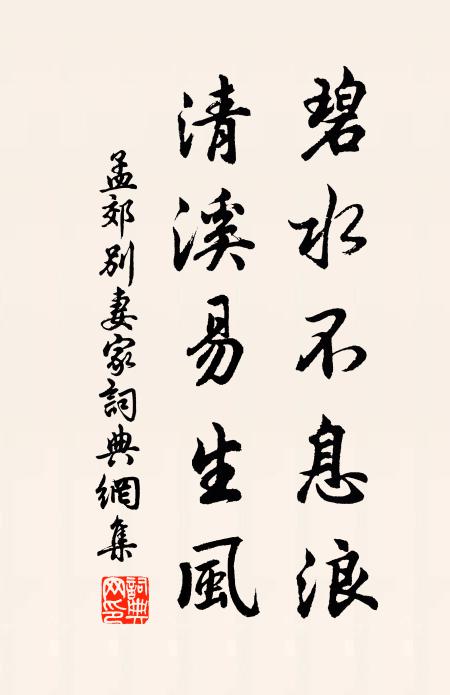 碧水不息浪
清溪易生風
孟郊別妻家詞典網集
詞典网印